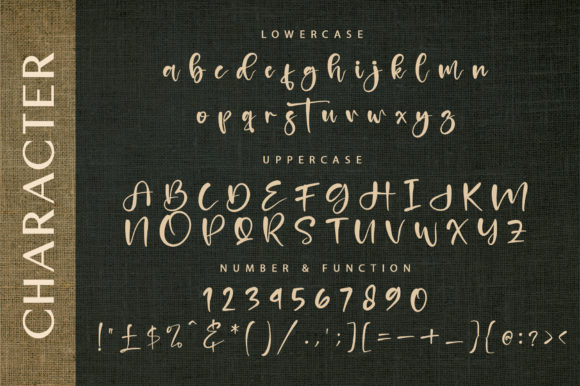 CHARACTER
LOWERCASE
a b c d e f g h i j k l m n
o p q r s t u v w x y z
UPPERCASE
A B C D E F G H I J K M
N O P Q R S T U V W X Y Z
NUMBER & FUNCTION
1 2 3 4 5 6 7 8 9 0
! " £ $ % ^ & * ( ) / . , ' ; ] [ = – + _ ] { @ : ? > <